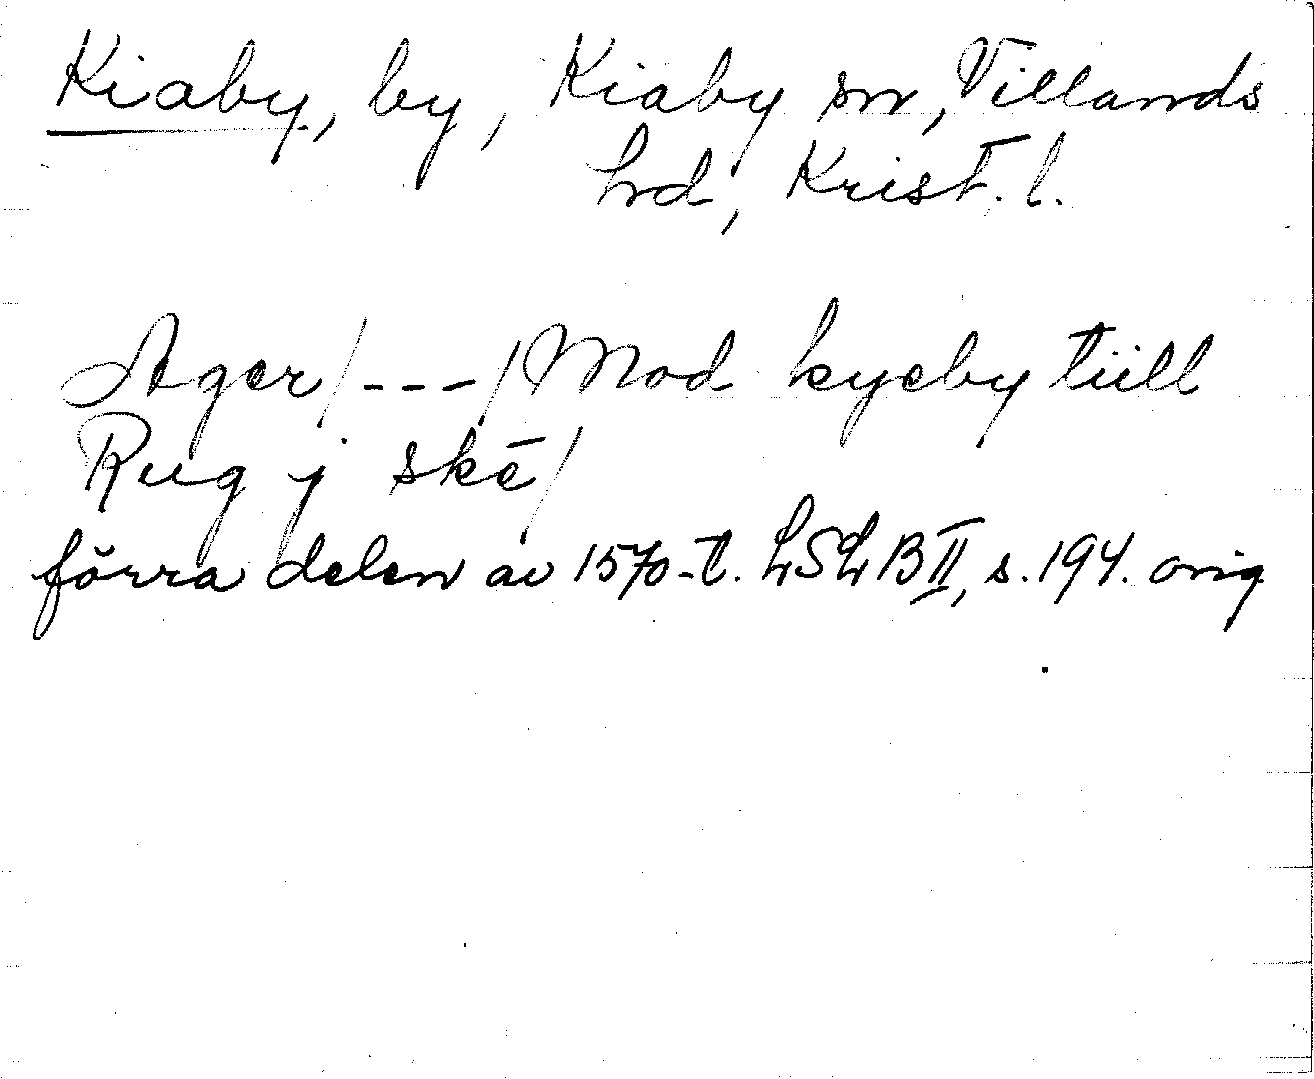 Kiaby, by, Kiaby sn, Villands
hd, Krist. l.
Ager/---/Mod kyeby tiill
Rug j skē/
förra delen av 1570-t. LSL B II, s. 194. orig